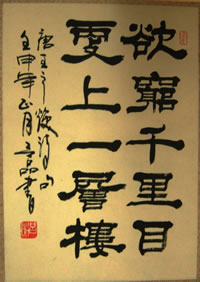 欲窮千里目
更上一層樓
唐王之渙詩句
壬申年正月
書